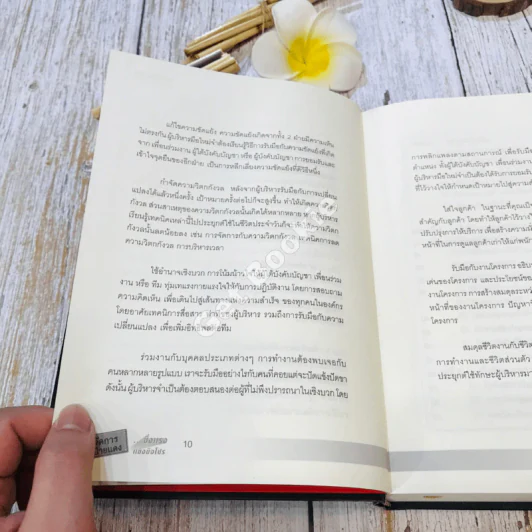 แก้ไขความขัดแย้ง ความขัดแย้งเกิดจากทั้ง 2 ฝ่ายมีความเห็น
ไม่ตรงกัน ผู้บริหารมือใหม่จำต้องเรียนรู้วิธีการรับมือกับความขัดแย้งที่เกิด
จาก เพื่อนร่วมงาน ผู้ใต้บังคับบัญชา หรือ ผู้บังคับบัญชา การยอมรับและ
เข้าใจจุดยืนของอีกฝ่าย เป็นการหลีกเลี่ยงความขัดแย้งที่ดีวิธีหนึ่ง
กำจัดความวิตกกังวล หลังจากผู้บริหารรับมือกับการเปลี่ยน
แปลงได้แล้วหนึ่งครั้ง เป้าหมายครั้งต่อไปก็จะสูงขึ้น ทำให้เกิดความ
กังวล ส่วนสาเหตุของความวิตกกังวลนั้นเกิดได้หลากหลาย หากผู้บริหาร
เรียนรู้เทคนิคเหล่านี้ไปประยุกต์ใช้ในชีวิตประจำวันก็จะทำให้ความวิตก
กังวลนั้นลดน้อยลง เช่น การจัดการกับความวิตกกังวล เทคนิคการลด
ความวิตกกังวล การบริหารเวลา
ใช้อำนาจเชิงบวก การโน้มน้าวใจให้ผู้ใต้บังคับบัญชา เพื่อนร่วม
งาน หรือ ทีม ทุ่มเทแรงกายแรงใจให้กับการปฏิบัติงาน โดยการสอบถาม
ความคิดเห็น เพื่อเดินไปสู่เส้นทางแห่งความสำเร็จ ของทุกคนในองค์กร
โดยอาศัยเทคนิคการสื่อสาร ผู้บริหาร รวมถึงการรับมือกับความ
เปลี่ยนแปลง เพื่อเพิ่มอิทธิพลต่อทีม
ร่วมงานกับบุคคลประเภทต่างๆ การทำงานต้องพบเจอกับ
คนหลากหลายรูปแบบ เราจะรับมืออย่างไรกับคนที่คอยแต่จะปัดแข้งปัดขา
ดังนั้น ผู้บริหารจำเป็นต้องตอบสนองต่อผู้ที่ไม่พึงปรารถนาในเชิงบวก โดย
จัดการ
10
การพลิกแพลงตามสถานการณ์ เพื่อรับมือ
ตำแหน่ง ทั้งผู้ใต้บังคับบัญชา เพื่อนร่วมงาน
ผู้บริหารมือใหม่จำเป็นต้องได้รับการยอมรับ
ที่ไว้วางใจให้กำหนดเป้าหมายไปสู่ความ
ใส่ใจลูกค้า ในฐานะที่คุณเป็น
สำคัญกับลูกค้า โดยทำให้ลูกค้าไว้วาง
ปรับปรุงการให้บริการ เพื่อสร้างความนึก
หน้าที่ในการดูแลลูกค้าเก่าให้แก่พนัก
รับมือกับงานโครงการ อธิบ
เด่นของโครงการ และประโยชน์ของ
งานโครงการ การสร้างสมดุลระหว่
หน้าที่ของงานโครงการ ปัญหาที่
โครงการ
สมดุลชีวิตงานกับชีวิต
การทำงานและชีวิตส่วนตัว
ประยุกต์ใช้ทักษะผู้บริหารมา